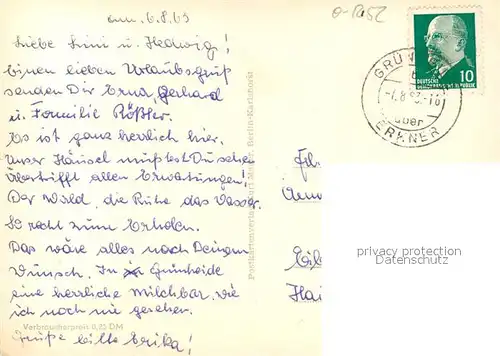 am, 6.8.63
Liebe Irmi u. Hedwig!
Einen lieben Urlaubsgruß
senden Dir Erna, Gerhard
u. Familie Rößler.
Es ist ganz herrlich hier.
Unser Häusel müßtest Du sehen
Übertrifft allen Erwartungen!
Der Wald, die Ruhe das Wasser.
So recht zum Erholen.
Das wäre alles nach Deinem
Wunsch. In Grünheide
eine herrliche Milchbar, wie
ich noch nie gesehen.
Verbraucherpreis 0,25 DM
Grüße bitte Erika!
Berlin-Karlshorst
DEUTSCHE
DEMOKRATISCHE REPUBLIK
10
GRÜN
-7.8.63.-18
über
ERKNER
privacy protection
Datenschutz